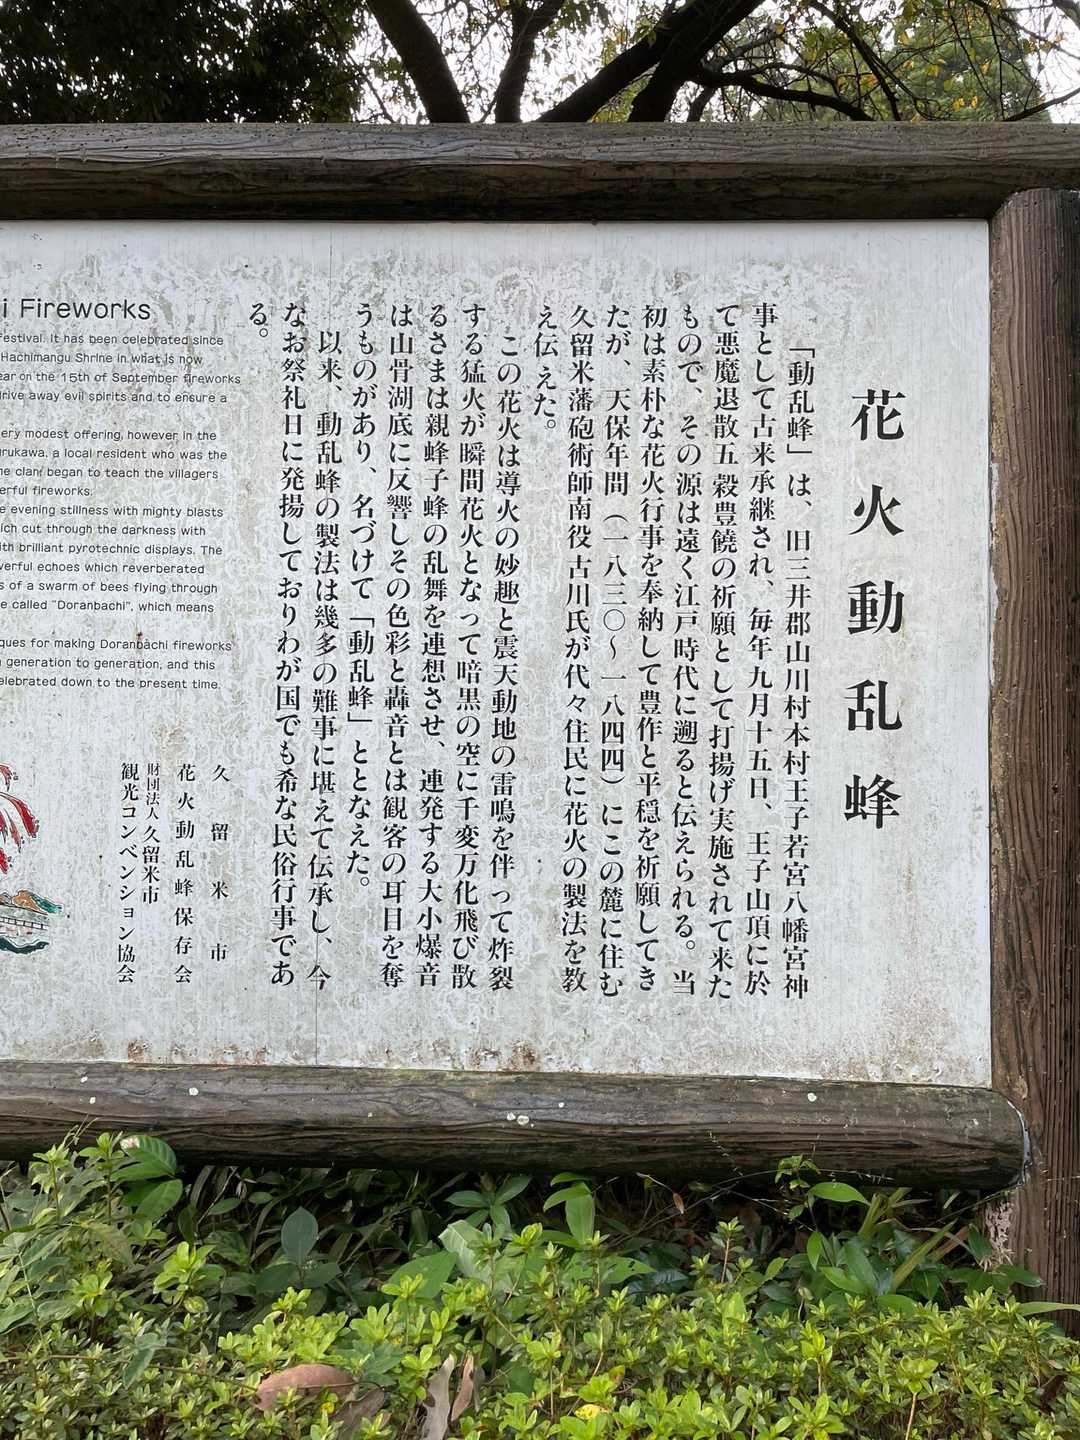 花火動乱蜂
「動乱蜂」は、旧三井郡山川村本村王子若宮八幡宮神
事として古来承継され、毎年九月十五日、王子山頂に於
て悪魔退散五穀豊饒の祈願として打揚げ実施されて来た
もので、その源は遠く江戸時代に遡ると伝えられる。当
初は素朴な花火行事を奉納して豊作と平穏を祈願してき
たが、天保年間（一八三〇～一八四四）にこの麓に住む
久留米藩砲術師南役古川氏が代々住民に花火の製法を教
え伝えた。
この花火は導火の妙趣と震天動地の雷鳴を伴って炸裂
する猛火が瞬間花火となって暗黒の空に千変万化飛び散
るさまは親蜂子蜂の乱舞を連想させ、連発する大小爆音
は山骨湖底に反響しその色彩と轟音とは観客の耳目を奪
うものがあり、名づけて「動乱蜂」ととなえた。
以来、動乱蜂の製法は幾多の難事に堪えて伝承し、今
なお祭礼日に発揚しておりわが国でも希な民俗行事であ
る。
久留米市
花火動乱蜂保存会
財団法人久留米市
観光コンベンション協会
i Fireworks
festival. It has been celebrated since
Hachimangu Shrine in what is now
ear on the 15th of September fireworks
drive away evil spirits and to ensure a
ery modest offering, however in the
urukawa, a local resident who was the
me clan began to teach the villagers
erful fireworks.
e evening stillness with mighty blasts
ich cut through the darkness with
ith brilliant pyrotechnic displays. The
werful echoes which reverberated
s of a swarm of bees flying through
e called "Doranbachi", which means
ques for making Doranbachi fireworks
generation to generation, and this
elebrated down to the present time.